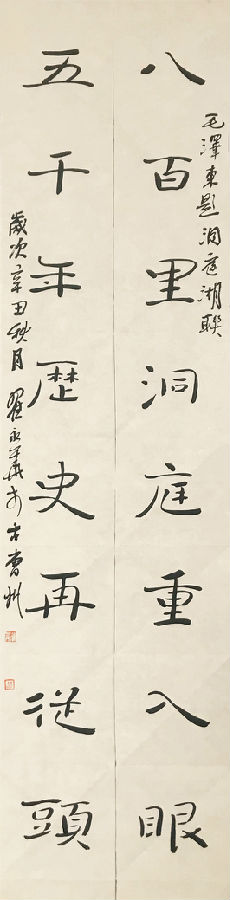 毛澤東題洞庭湖聯
八百里洞庭重入眼
五千年歷史再從頭
歲次辛丑秋月翟永華於古曹州